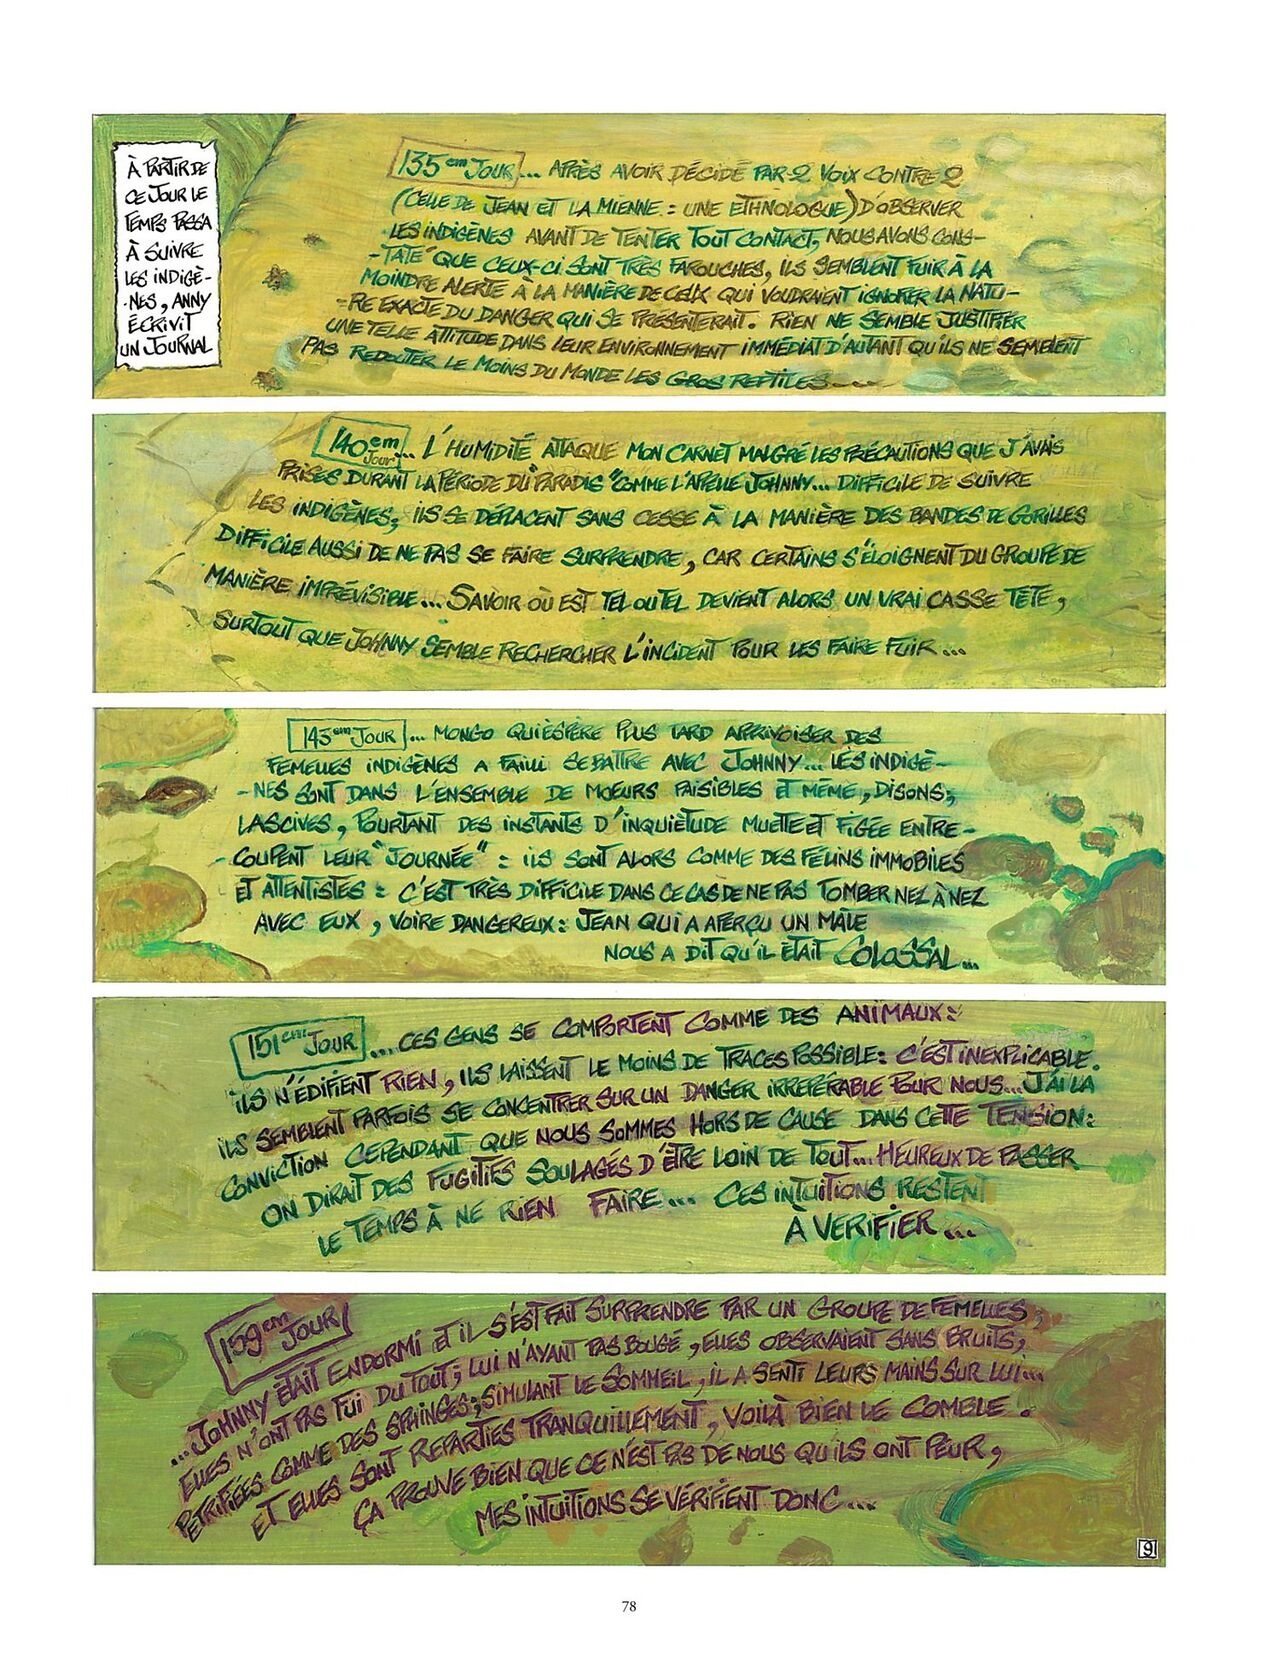 À PARTIR DE
CE JOUR LE
TEMPS PASSA
À SUIVRE
LES INDIGÈ-
-NES, ANNY
ÉCRIVIT
UN JOURNAL
135em JOUR... APRÈS AVOIR DÉCIDÉ PAR 2 VOIX CONTRE 2
(CELLE DE JEAN ET LA MIENNE : UNE ETHNOLOGUE) D'OBSERVER
LES INDIGÈNES AVANT DE TENTER TOUT CONTACT, NOUS AVONS CONS-
-TATÉ QUE CEUX-CI SONT TRÈS FAROUCHES, ILS SEMBLENT FUIR À LA
MOINDRE ALERTE À LA MANIÈRE DE CEUX QUI VOUDRAIENT IGNORER LA NATU-
-RE EXACTE DU DANGER QUI SE PRÉSENTERAIT. RIEN NE SEMBLE JUSTIFIER
UNE TELLE ATTITUDE DANS LEUR ENVIRONNEMENT IMMÉDIAT D'AUTANT QU'ILS NE SEMBLENT
PAS REDOUTER LE MOINS DU MONDE LES GROS REPTILES...
140em JOUR... L'HUMIDITÉ ATTAQUE MON CARNET MALGRÉ LES PRÉCAUTIONS QUE J'AVAIS
PRISES DURANT LA PÉRIODE DU "PARADIS" COMME L'APPELLE JOHNNY... DIFFICILE DE SUIVRE
LES INDIGÈNES, ILS SE DÉPLACENT SANS CESSE À LA MANIÈRE DES BANDES DE GORILLES
DIFFICILE AUSSI DE NE PAS SE FAIRE SURPRENDRE, CAR CERTAINS S'ÉLOIGNENT DU GROUPE DE
MANIÈRE IMPRÉVISIBLE... SAVOIR OÙ EST TEL OU TEL DEVIENT ALORS UN VRAI CASSE TÊTE,
SURTOUT QUE JOHNNY SEMBLE RECHERCHER L'INCIDENT POUR LES FAIRE FUIR...
143em JOUR... MONGO QUI ESPÈRE PLUS TARD APPRIVOISER DES
FEMELLES INDIGÈNES A FAILLI SE BATTRE AVEC JOHNNY... LES INDIGÈ-
-NES SONT DANS L'ENSEMBLE DE MOEURS PAISIBLES ET MÊME, DISONS,
LASCIVES, POURTANT DES INSTANTS D'INQUIÉTUDE MUETTE ET FIGÉE ENTRE-
-COUPENT LEUR "JOURNÉE" : ILS SONT ALORS COMME DES FÉLINS IMMOBILES
ET ATTENTISTES : C'EST TRÈS DIFFICILE DANS CE CAS DE NE PAS TOMBER NEZ À NEZ
AVEC EUX, VOIRE DANGEREUX : JEAN QUI A APERÇU UN MÂLE
NOUS A DIT QU'IL ÉTAIT COLOSSAL...
151em JOUR ...CES GENS SE COMPORTENT COMME DES ANIMAUX :
ILS N'ÉDIFIENT RIEN, ILS LAISSENT LE MOINS DE TRACES POSSIBLE : C'EST INEXPLICABLE.
ILS SEMBLENT PARFOIS SE CONCENTRER SUR UN DANGER IRREPÉRABLE POUR NOUS... J'AI LA
CONVICTION CEPENDANT QUE NOUS SOMMES HORS DE CAUSE DANS CETTE TENSION :
ON DIRAIT DES FUGITIFS SOULAGÉS D'ÊTRE LOIN DE TOUT... HEUREUX DE PASSER
LE TEMPS À NE RIEN FAIRE... CES INTUITIONS RESTENT
À VERIFIER...
159em JOUR
...JOHNNY ÉTAIT ENDORMI ET IL S'EST FAIT SURPRENDRE PAR UN GROUPE DE FEMELLES,
ELLES N'ONT PAS FUI DU TOUT ; LUI N'AYANT PAS BOUGÉ, ELLES OBSERVAIENT SANS BRUITS,
PETRIFIÉES COMME DES SPHINGES ; SIMULANT LE SOMMEIL, IL A SENTI LEURS MAINS SUR LUI...
ET ELLES SONT REPARTIES TRANQUILLEMENT, VOILÀ BIEN LE COMBLE !
ÇA PROUVE BIEN QUE CE N'EST PAS DE NOUS QU'ILS ONT PEUR,
MES INTUITIONS SE VÉRIFIENT DONC...
9
78